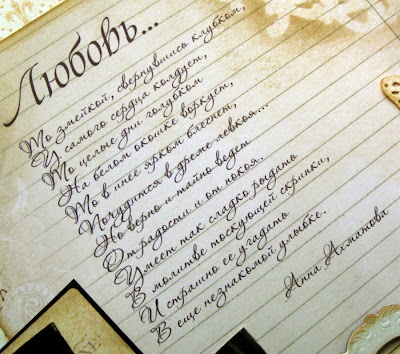 Любовь...
То змейкой, свернувшись клубком,
У самого сердца колдует,
То целые дни голубком
На белом окошке воркует,
То в инее ярком блеснет,
Почудится в дреме левкоя...
Но верно и тайно ведет
От радости и от покоя.
Умеет так сладко рыдать
В молитве тоскующей скрипки,
И страшно ее угадать
В еще незнакомой улыбке.
Анна Ахматова